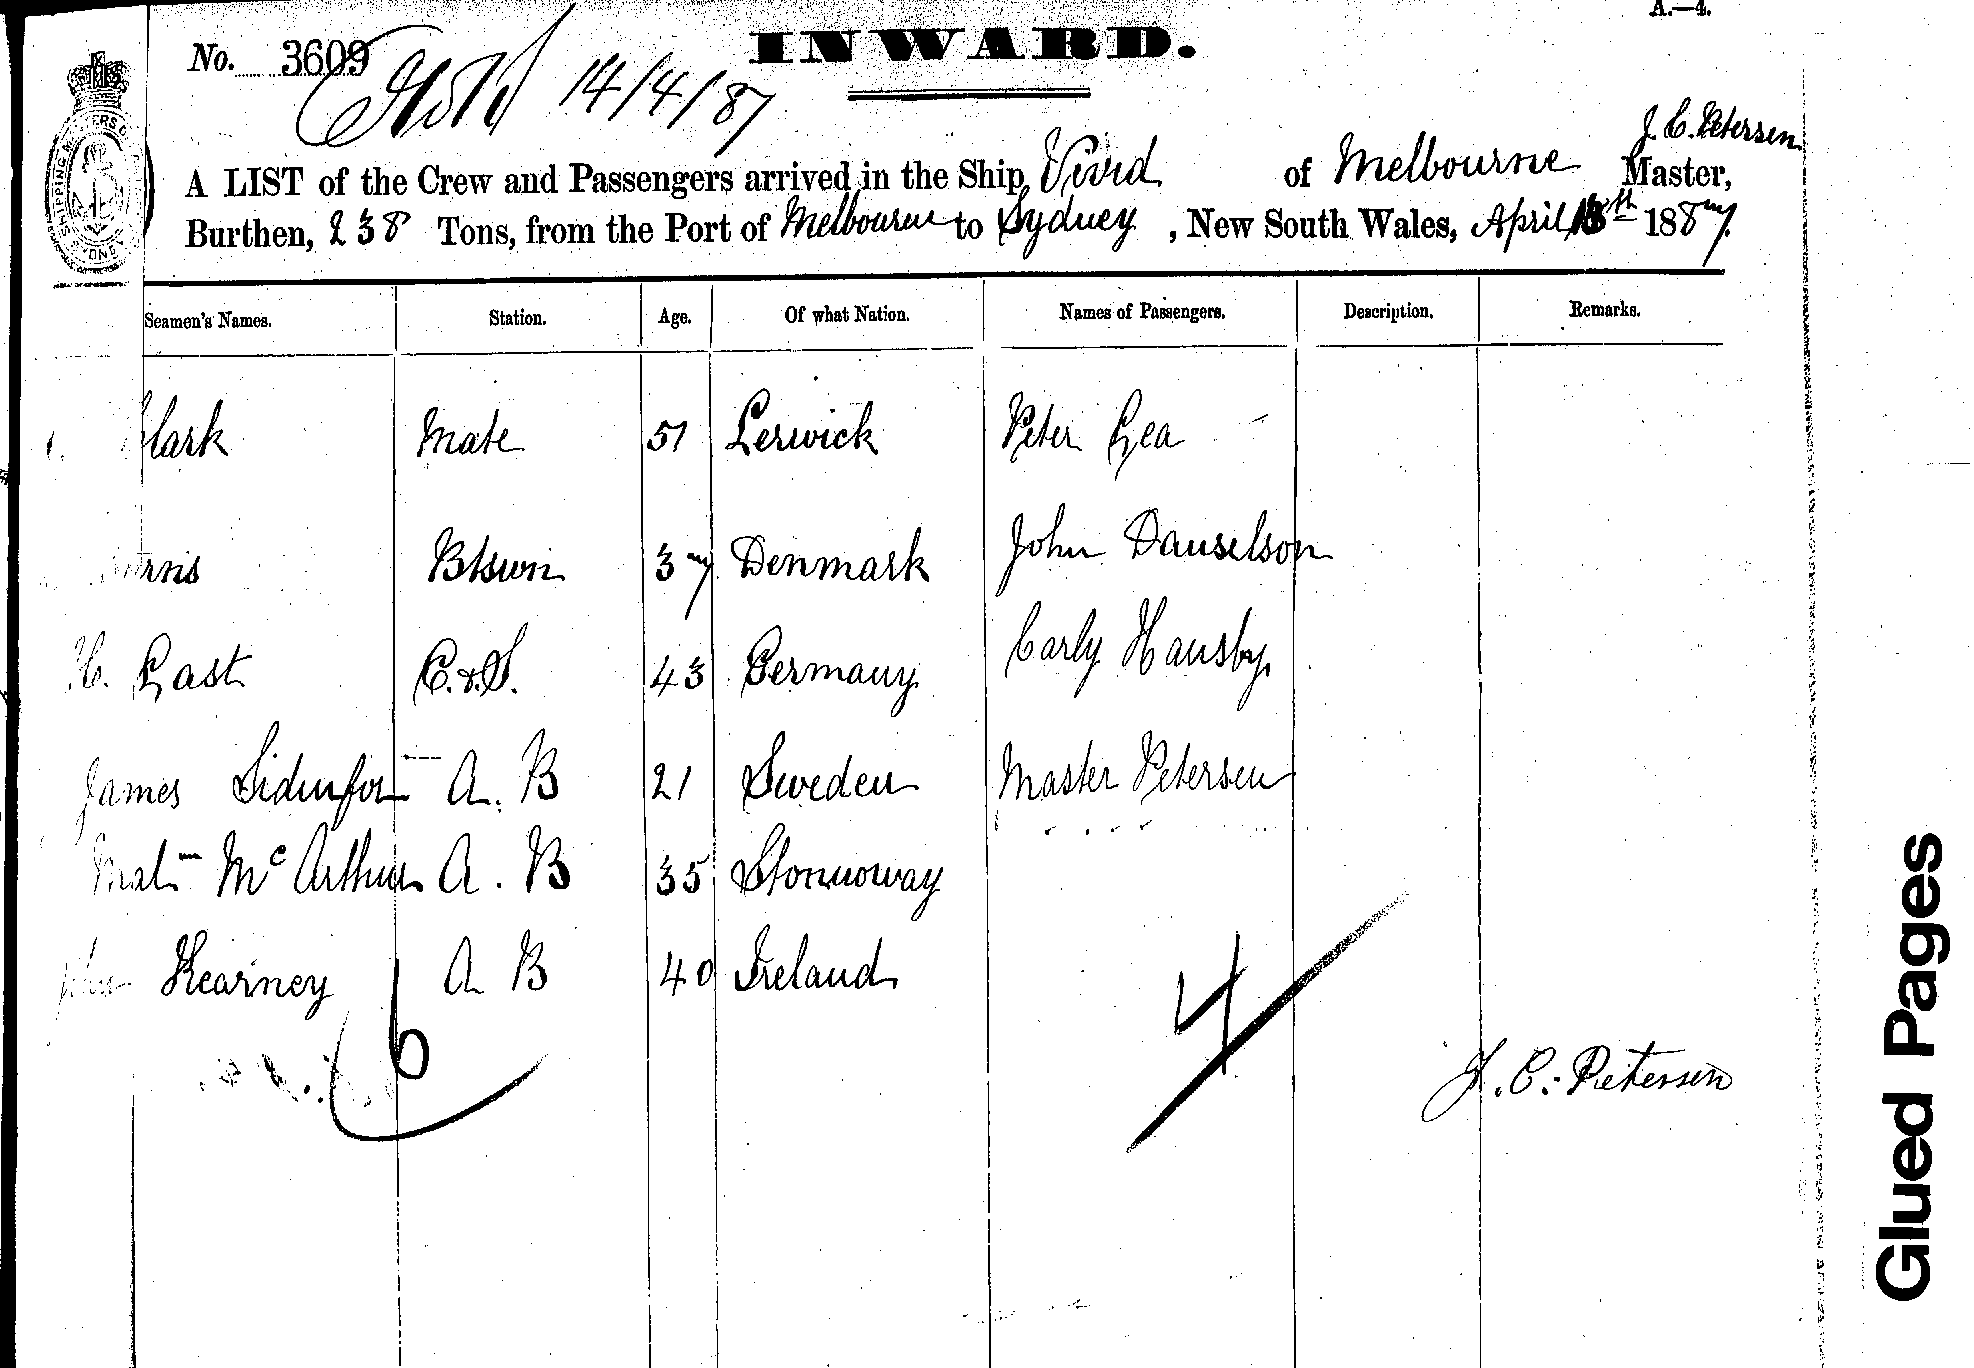 A.—4.
No. 3609
INWARD.
14/4/87
J. C. Petersen
A LIST of the Crew and Passengers arrived in the Ship Vivid of Melbourne Master,
Burthen, 238 Tons, from the Port of Melbourne to Sydney, New South Wales, April th 1887.
Seamen's Names. Station. Age. Of what Nation. Names of Passengers. Description. Remarks.
lark Mate 51 Lerwick Peter Gea
Btswn 37 Denmark John Dauselson
H. Gast C. & S. 43 Germany Carly Hausby
James A. B 21 Sweden Master Petersen
Mc Arthur A. B 35 Stornoway
Kearney A B 40 Ireland
6
4
J. C. Petersen
Glued Pages